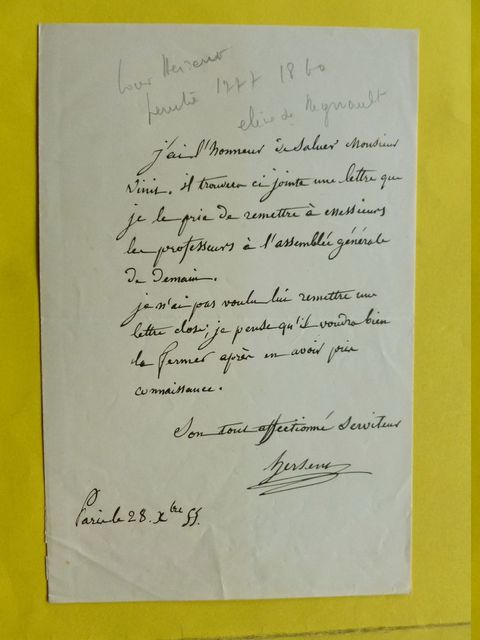 Louis Hersent
peintre 1777 1860
élève de Regnault
j'ai l'honneur de saluer Monsieur
Vinit. il trouvera ci jointe une lettre que
je le prie de remettre à messieurs
les professeurs à l'assemblée générale
de demain.
je n'ai pas voulu lui remettre une
lettre close; je pense qu'il voudra bien
la fermer après en avoir pris
connaissance.
Son tout affectionné Serviteur
hersent
Paris le 28. Xbre 55.